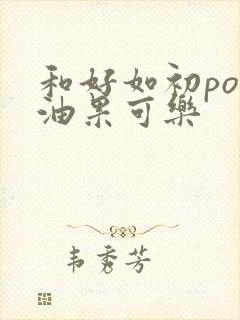 和好如初po
油果可樂
韦秀芳